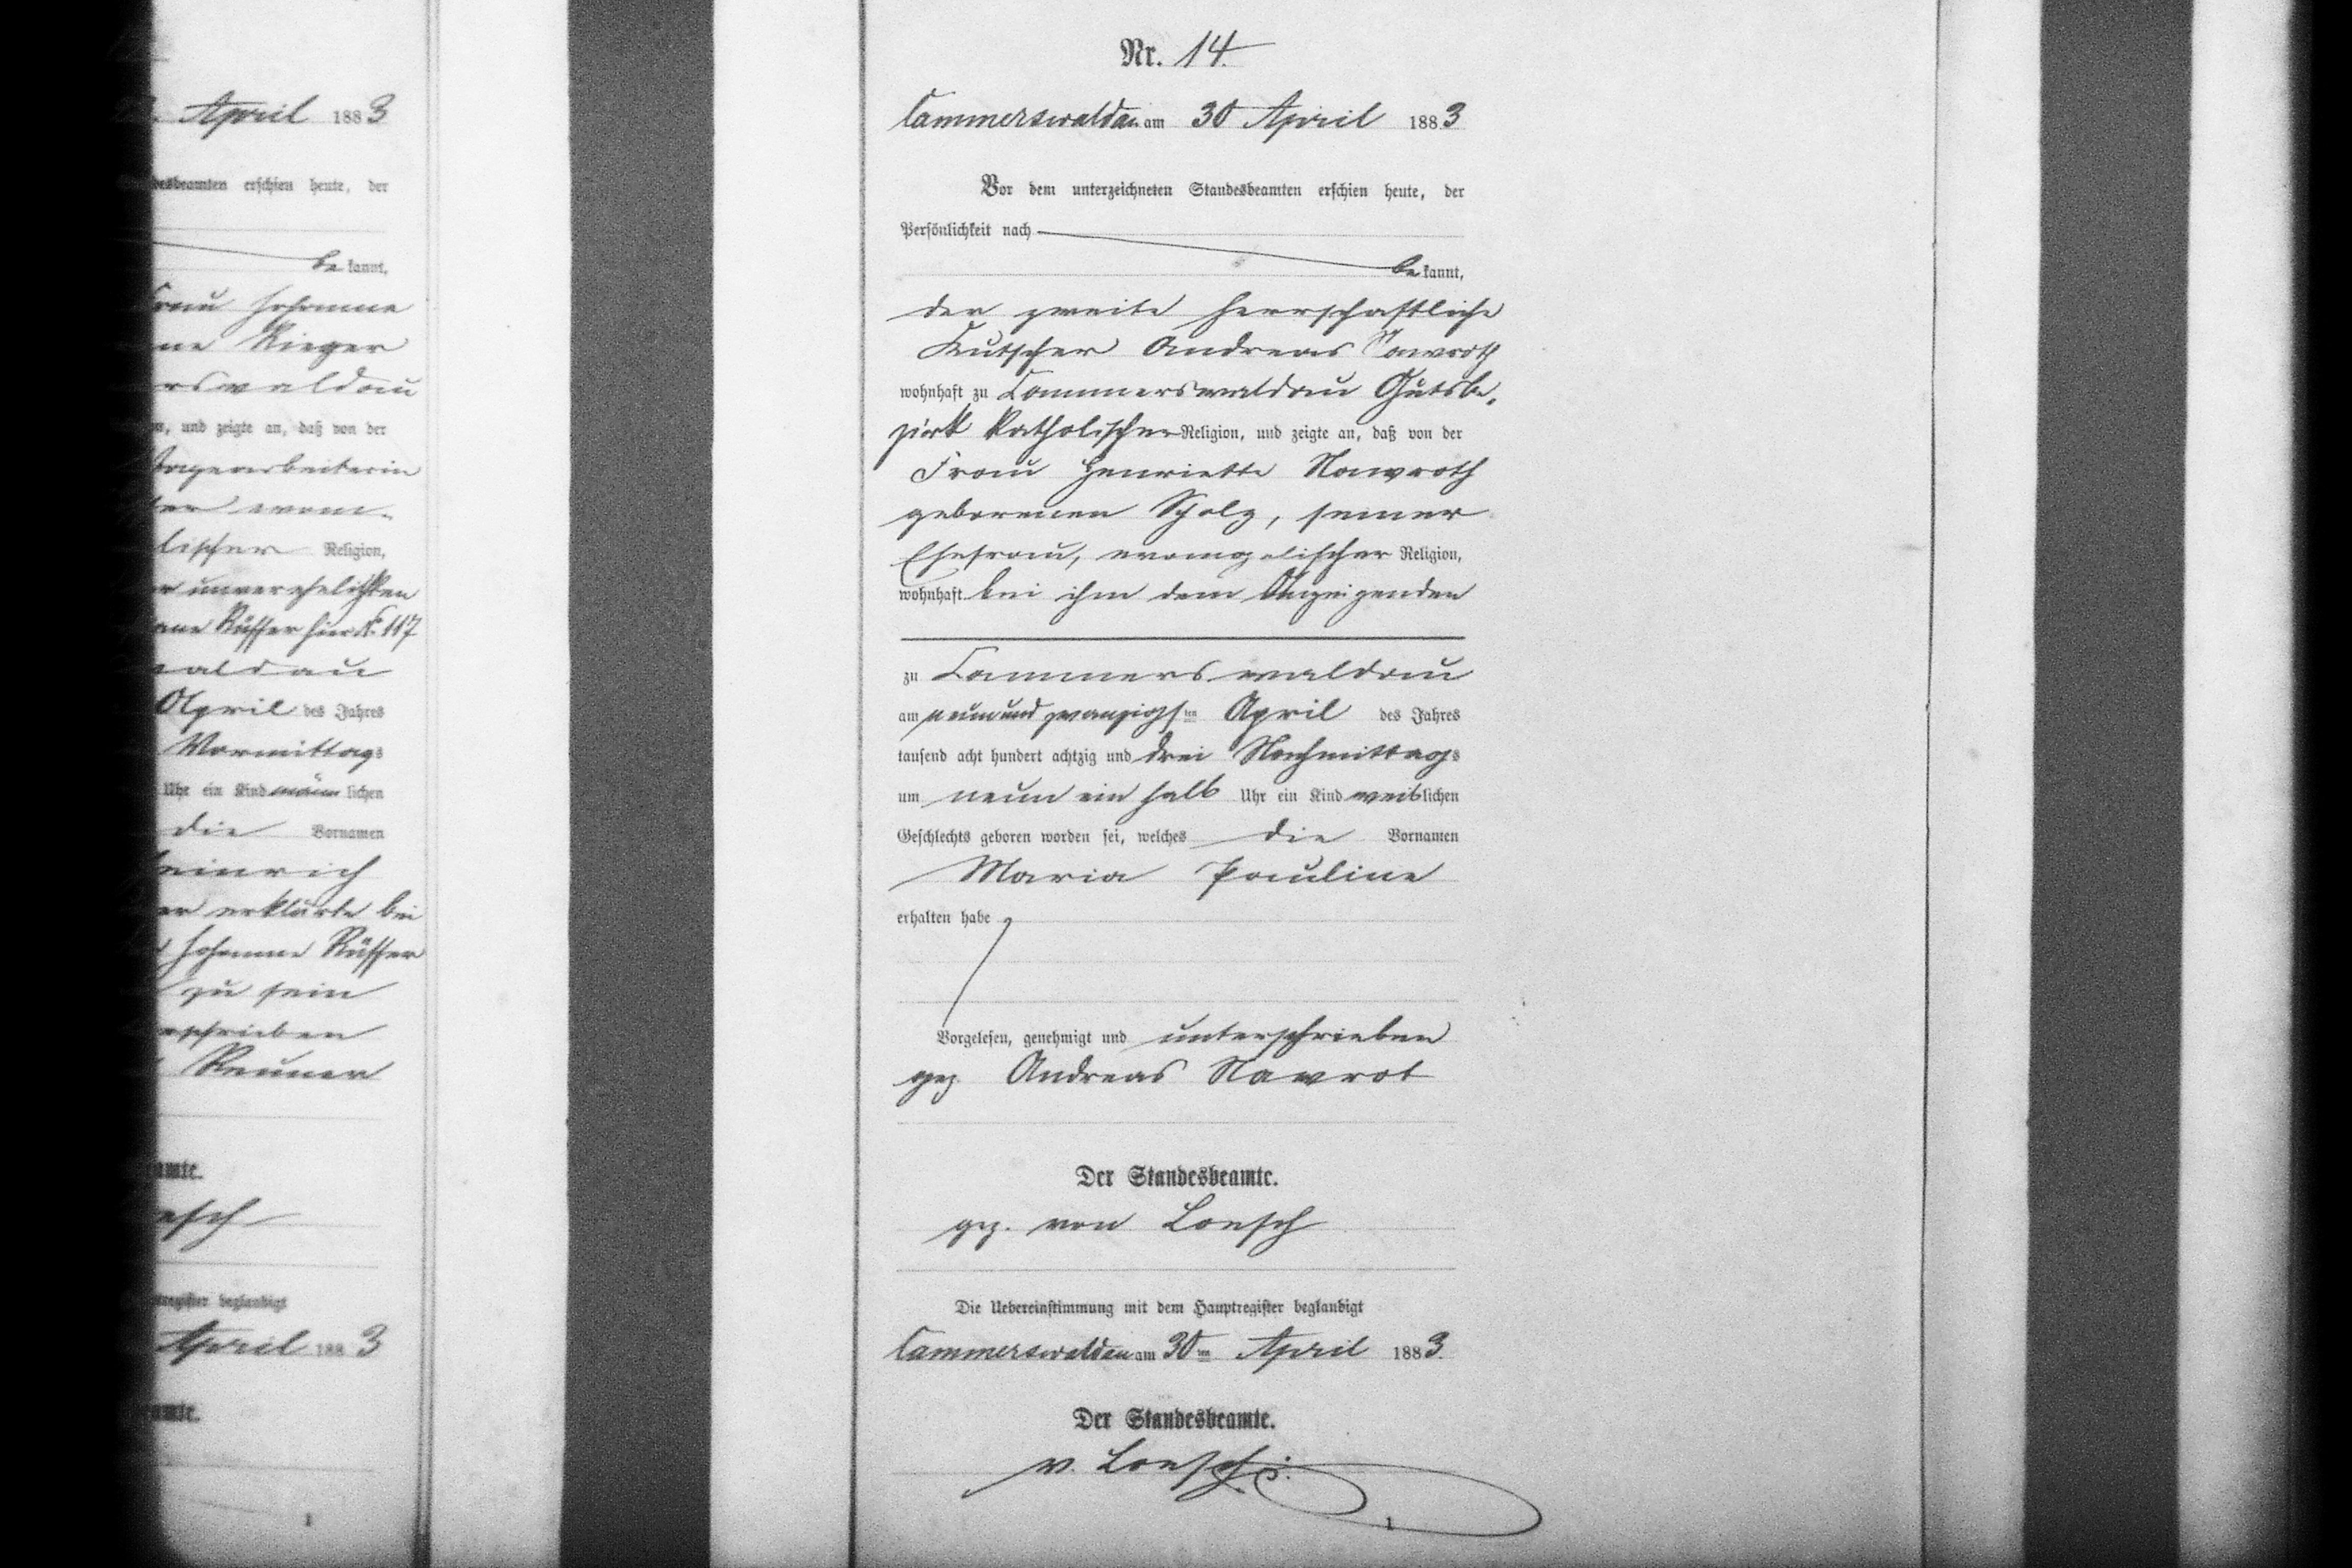 April 1883
desbeamten erschien heute, der
be kannt,
Frau Johanne
ne Rieger
rswaldau
und zeigte an, daß von der
Tagearbeiterin
lischer Religion,
r unverehelichten
Rüffer hier No. 117
waldau
April des Jahres
Vormittags
Uhr ein Kind männlichen
die Vornamen
einrich
er erklärte bei
Johanne Rüffer
zu sein
rschrieben
Reuner
amte.
esch
register beglaubigt
April 1883
amte.
1
Nr. 14.
Cammerswaldau am 30 April 1883
Vor dem unterzeichneten Standesbeamten erschien heute, der
Persönlichkeit nach
be kannt,
der zweite herrschaftliche
Kutscher Andreas Nawroth
wohnhaft zu Cammerswaldau Gutsbe-
zirk katholischer Religion, und zeigte an, daß von der
Frau Henriette Nawroth
geborenen Scholz, seiner
Ehefrau, evangelischer Religion,
wohnhaft bei ihm dem Anzeigenden
zu Cammerswaldau
am neunundzwanzigsten April des Jahres
tausend acht hundert achtzig und drei Nachmittags
um neun ein halb Uhr ein Kind weiblichen
Geschlechts geboren worden sei, welches die Vornamen
Maria Pauline
erhalten habe
Vorgelesen, genehmigt und unterschrieben
gez. Andreas Nawrot
Der Standesbeamte.
gez. von Loesch
Die Uebereinstimmung mit dem Hauptregister beglaubigt
Cammerswaldau am 30ten April 1883.
Der Standesbeamte.
v. Loesch.
1